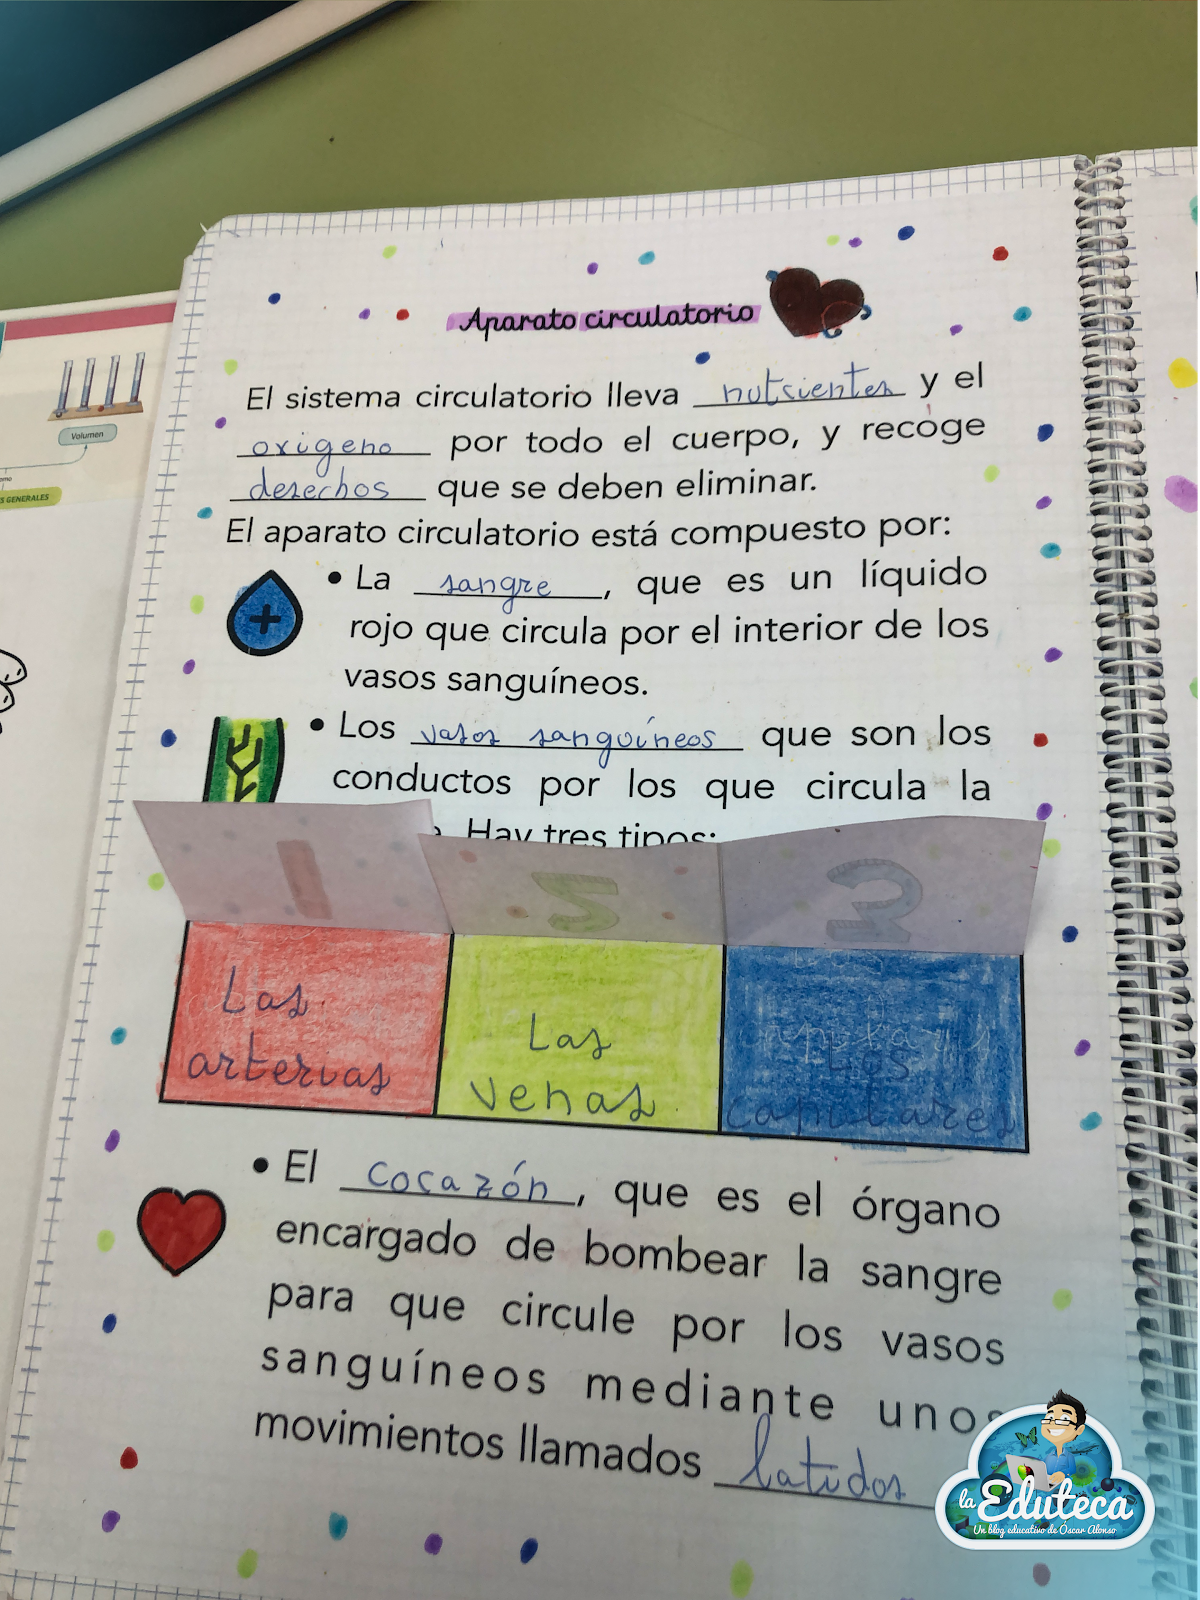 Volumen
S GENERALES
Aparato circulatorio
El sistema circulatorio lleva nutrientes y el
oxigeno por todo el cuerpo, y recoge
desechos que se deben eliminar.
El aparato circulatorio está compuesto por:
• La sangre, que es un líquido
rojo que circula por el interior de los
vasos sanguíneos.
• Los vasos sanguíneos que son los
conductos por los que circula la
Hay tres tipos:
1 2 3
Las
arterias
Las
venas
Los
capilares
• El corazón, que es el órgano
encargado de bombear la sangre
para que circule por los vasos
sanguíneos mediante unos
movimientos llamados latidos
la Eduteca
Un blog educativo de Óscar Alonso